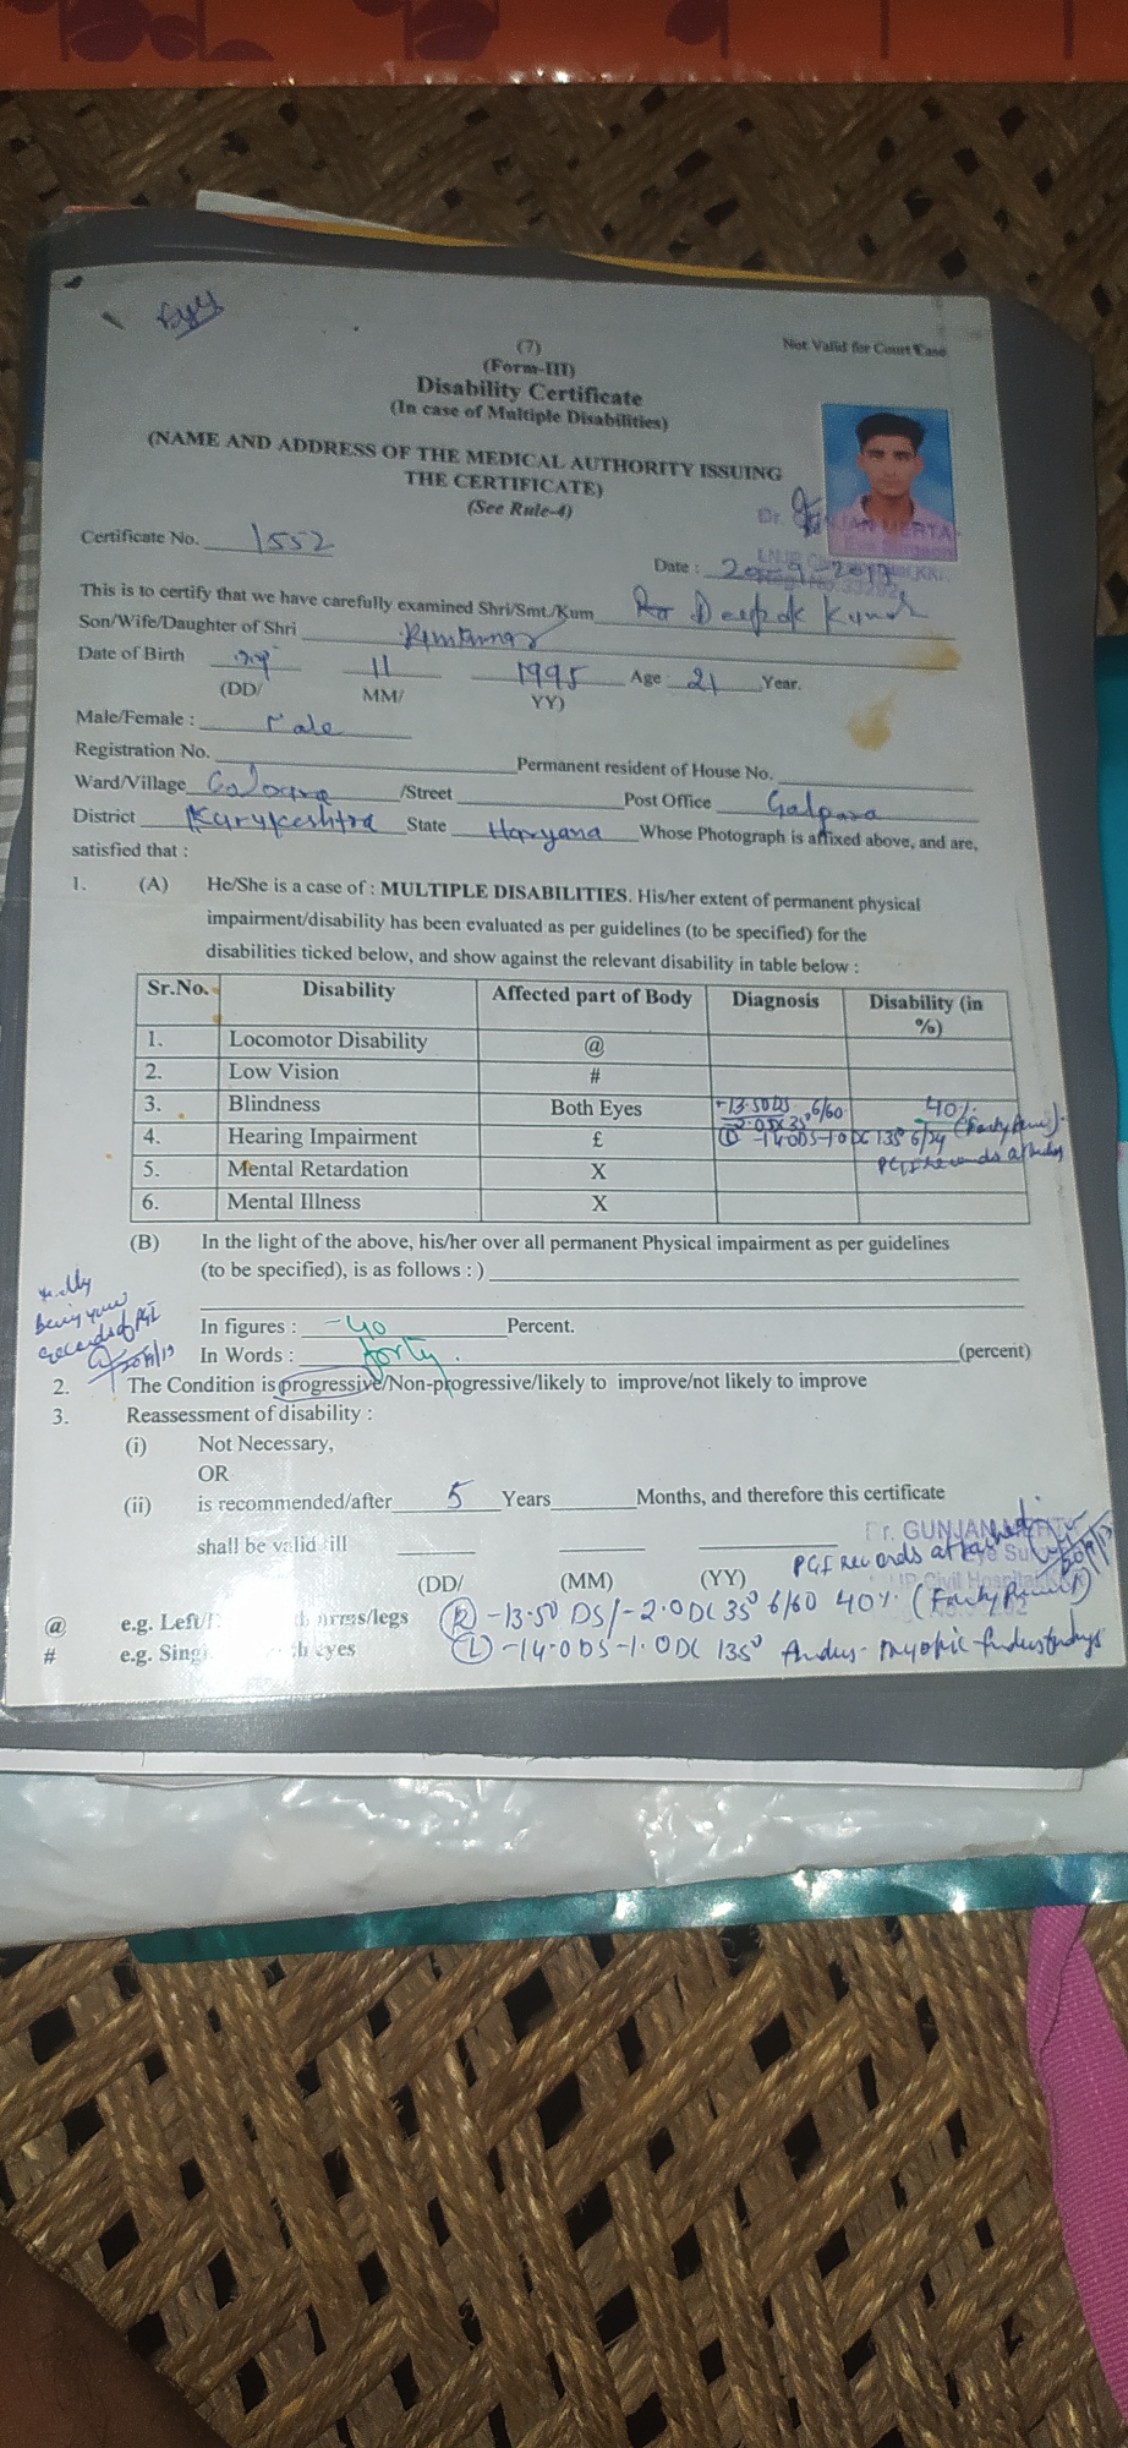 Eye
(7)
Not Valid for Court Case
(Form-III)
Disability Certificate
(In case of Multiple Disabilities)
(NAME AND ADDRESS OF THE MEDICAL AUTHORITY ISSUING
THE CERTIFICATE)
(See Rule-4)
Dr. GUNJAN MEHTA
Eye Surgeon
Certificate No. 1552
Date : 20-9-
This is to certify that we have carefully examined Shri/Smt./Kum Deepak Kumar
Son/Wife/Daughter of Shri
Date of Birth 11 1995 Age 21 Year.
(DD/ MM/ YY)
Male/Female : Male
Registration No. Permanent resident of House No.
Ward/Village /Street Post Office
District Kurukeshtra State Haryana Whose Photograph is affixed above, and are,
satisfied that :
1. (A) He/She is a case of : MULTIPLE DISABILITIES. His/her extent of permanent physical
impairment/disability has been evaluated as per guidelines (to be specified) for the
disabilities ticked below, and show against the relevant disability in table below :
Sr.No. Disability Affected part of Body Diagnosis Disability (in %)
1. Locomotor Disability @
2. Low Vision #
3. Blindness Both Eyes -13.50 DS 6/60 40%
4. Hearing Impairment £ (L) -14.0DS-1.0DC 135° 6/24
PGI records
5. Mental Retardation X
6. Mental Illness X
(B) In the light of the above, his/her over all permanent Physical impairment as per guidelines
(to be specified), is as follows : )
In figures : -40 Percent.
In Words : forty. (percent)
records of PGI
2. The Condition is progressive/Non-progressive/likely to improve/not likely to improve
3. Reassessment of disability :
(i) Not Necessary,
OR
(ii) is recommended/after 5 Years Months, and therefore this certificate
shall be valid ill
(DD/ (MM) (YY)
Dr. GUNJAN
PGI Records attached
@ e.g. Left/ arms/legs (R) -13.50 DS/-2.0DC 35° 6/60 40%
# e.g. Singl eyes (L) -14.0DS-1.0DC 135° Fundus- myopic